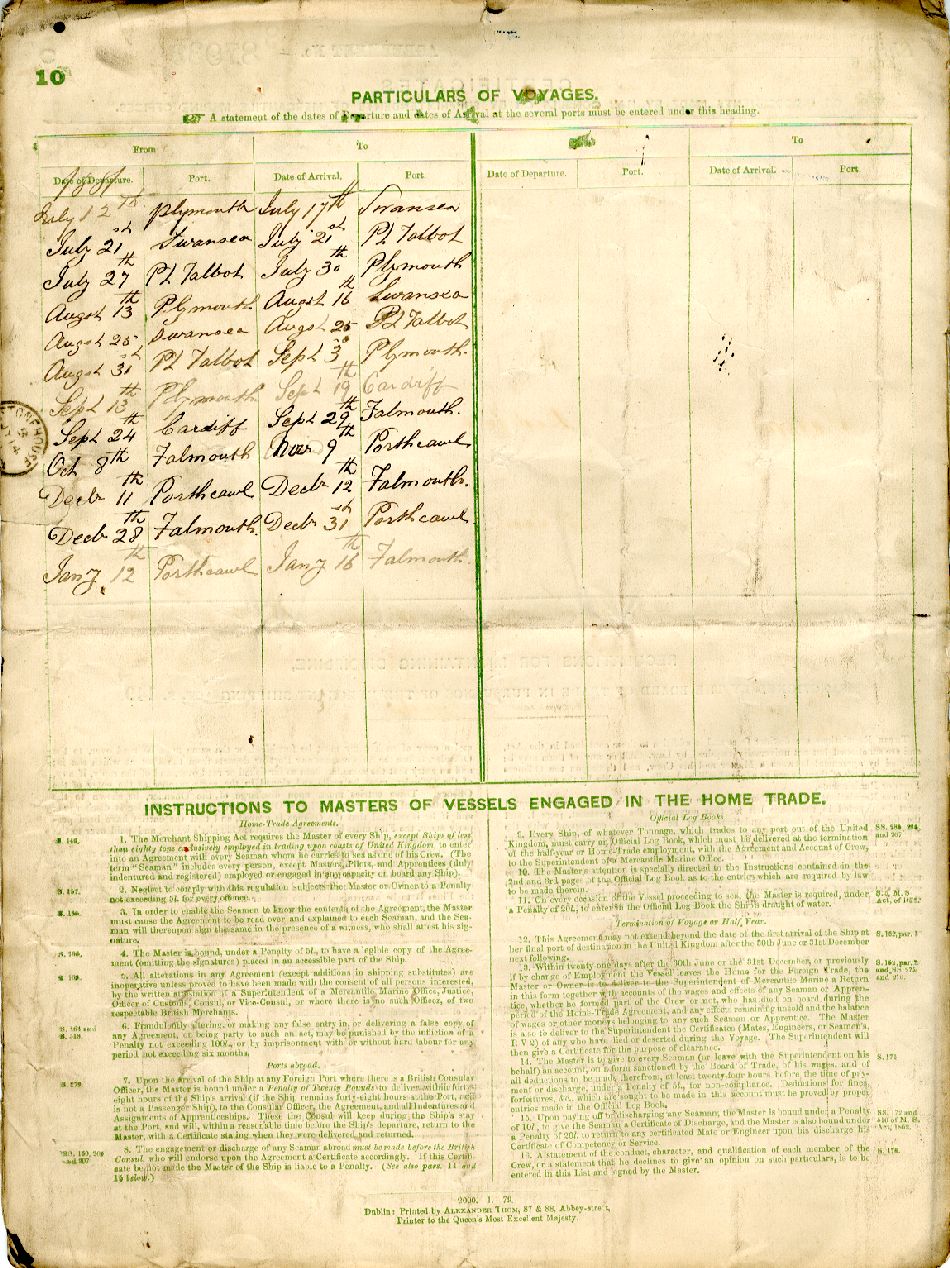 10
PARTICULARS OF VOYAGES.
A statement of the dates of Departure and dates of Arrival at the several ports must be entered under this heading.
From To To
Date of Departure. Port. Date of Arrival. Port Date of Departure. Port. Date of Arrival. Port
July 12th Plymouth July 17th Swansea
July 21st Swansea July 21st Pt Talbot
July 27th Pt Talbot July 30th Plymouth
Augst 13th Plymouth Augst 16th Swansea
Augst 25 Swansea Augst 25 Pt Talbot
Augst 31st Pt Talbot Sept 3d Plymouth
Sept 13th Plymouth Sept 19th Cardiff
Sept 24th Cardiff Sept 29th Falmouth.
Oct 8th Falmouth Novr 9th Porthcawl
Decbr 11th Porthcawl Decbr 12th Falmouth.
Decbr 28th Falmouth. Decbr 31st Porthcawl
Jany 12th Porthcawl Jany 16th Falmouth.
INSTRUCTIONS TO MASTERS OF VESSELS ENGAGED IN THE HOME TRADE.
Home-Trade Agreements.
1. The Merchant Shipping Act requires the Master of every Ship, except Ships of less
than eighty tons exclusively employed in trading upon coasts of United Kingdom, to enter
into an Agreement with every Seaman whom he carries to sea as one of his Crew. (The
term "Seaman" includes every person, except Masters, Pilots, and Apprentices duly
indentured and registered) employed or engaged in any capacity on board any Ship).
S. 157.
2. Neglect to comply with this regulation subjects the Master or Owner to a Penalty
not exceeding 5l. for every offence.
3. In order to enable the Seamen to know the contents of the Agreement, the Master
must cause the Agreement to be read over and explained to each Seaman, and the Sea-
man will thereupon sign the same in the presence of a witness, who shall attest his sig-
nature.
4. The Master is bound, under a Penalty of 5l., to have a legible copy of the Agree-
ment (omitting the signatures) placed in an accessible part of the Ship.
5. All alterations in any Agreement (except additions in shipping substitutes) are
inoperative unless proved to have been made with the consent of all persons interested,
by the written attestation of a Superintendent of a Mercantile Marine Office, Justice,
Officer of Customs, Consul, or Vice-Consul, or where there is no such Officer, of two
respectable British Merchants.
6. Fraudulently altering, or making any false entry in, or delivering a false copy of
any Agreement, or being party to such an act, may be punished by the infliction of a
Penalty not exceeding 100l., or by imprisonment with or without hard labour for any
period not exceeding six months.
Ports abroad.
S. 279
7. Upon the arrival of the Ship at any Foreign Port where there is a British Consular
Officer, the Master is bound under a Penalty of Twenty Pounds to deliver within forty-
eight hours of the Ship's arrival (if the Ship remains forty-eight hours at the Port, and
is not a Passenger Ship), to the Consular Officer, the Agreement, and all Indentures and
Assignments of Apprenticeships. These the Consul will keep during the Ship's stay
at the Port, and will, within a reasonable time before the Ship's departure, return to the
Master, with a Certificate stating when they were delivered and returned.
8. The engagement or discharge of any Seaman abroad must be made before the British
Consul, who will endorse upon the Agreement a Certificate accordingly. If this Certifi-
cate be not made the Master of the Ship is liable to a Penalty. (See also pars. 14 and
15 below.)
Official Log Books
9. Every Ship, of whatever Tonnage, which trades to any port out of the United
Kingdom, must carry an Official Log Book, which must be delivered at the termination
of the half-year or Home-Trade employment, with the Agreement and Account of Crew,
to the Superintendent of a Mercantile Marine Office.
10. The Master's attention is specially directed to the Instructions contained in the
2nd and 3rd pages of the Official Log Book as to the entries which are required by law
to be made therein.
11. On every occasion of the Vessel proceeding to sea, the Master is required, under
a Penalty of 20l., to enter in the Official Log Book the Ship's draught of water.
Termination of Voyage or Half Year.
12. This Agreement may not extend beyond the date of the first arrival of the Ship at
her final port of destination in the United Kingdom after the 30th June or 31st December
next following.
13. Within twenty-one days after the 30th June or the 31st December, or previously
if by change of Employment the Vessel leaves the Home for the Foreign Trade, the
Master or Owner is to deliver to the Superintendent of Mercantile Marine a Return
in this form together with accounts of the wages and effects of any Seaman or Appren-
tice, whether he formed part of the Crew or not, who has died on board during the
period of the Home-Trade Agreement, and any effects remaining unsold and the balance
of wages or other moneys belonging to any such Seaman or Apprentice. The Master
is also to deliver to the Superintendent the Certificates (Mates, Engineers, or Seamen's,
R. V 2) of any who have died or deserted during the Voyage. The Superintendent will
then give a Certificate for the purpose of clearance.
14. The Master is to give to every Seaman (or leave with the Superintendent on his
behalf) an account, on a form sanctioned by the Board of Trade, of his wages, and of
all deductions to be made therefrom, at least twenty-four hours before the time of pay-
ment or discharge, under a Penalty of 5l., for non-compliance. Deductions for fines,
forfeitures, &c., which are sought to be made in this account must be proved by proper
entries made in the Official Log Book.
15. Upon paying off or discharging any Seaman, the Master is bound under a Penalty
of 10l., to give the Seaman a Certificate of Discharge, and the Master is also bound under
a Penalty of 20l. to return to any certificated Mate or Engineer upon his discharge his
Certificate of Competency or Service.
16. A statement of the conduct, character, and qualification of each member of the
Crew, or a statement that he declines to give an opinion on such particulars, is to be
entered in this List and signed by the Master.
2000. 1. 79.
Dublin: Printed by ALEXANDER THOM, 87 & 88, Abbey-street,
Printer to the Queen's Most Excellent Majesty.